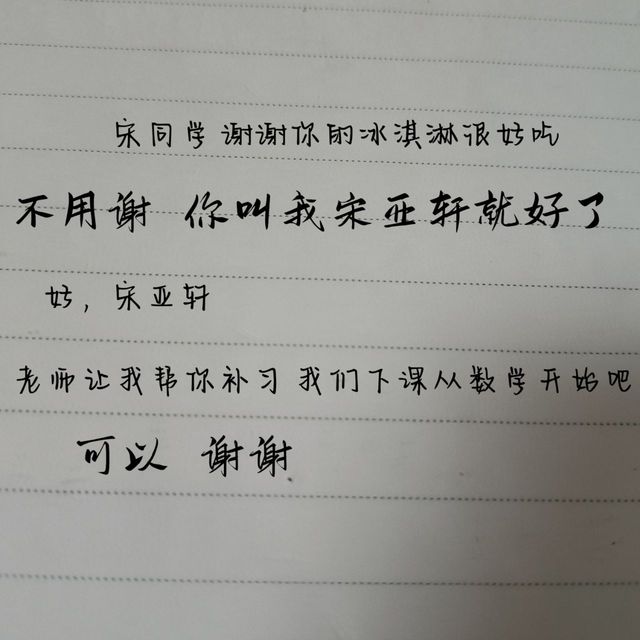 宋同学 谢谢你的冰淇淋很好吃
不用谢 你叫我宋亚轩就好了
好，宋亚轩
老师让我帮你补习 我们下课从数学开始吧
可以 谢谢